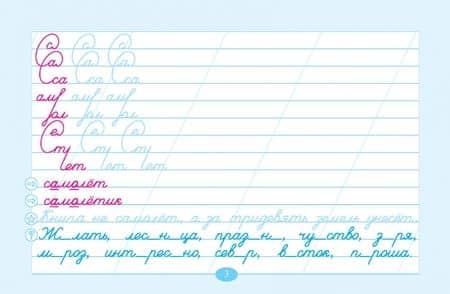 с с с
а а а
са са са
ам ам ам
ол ол ол
е е е
т т т
ет ет ет
самолёт
самолётик
Книга не самолёт, а за тридевять земель унесёт.
Ж_лать, лес_н_ца, праз_н_, чу_ство, з_ря,
м_роз, инт_рес_но, сев_р, в_сток, п_роша.
3